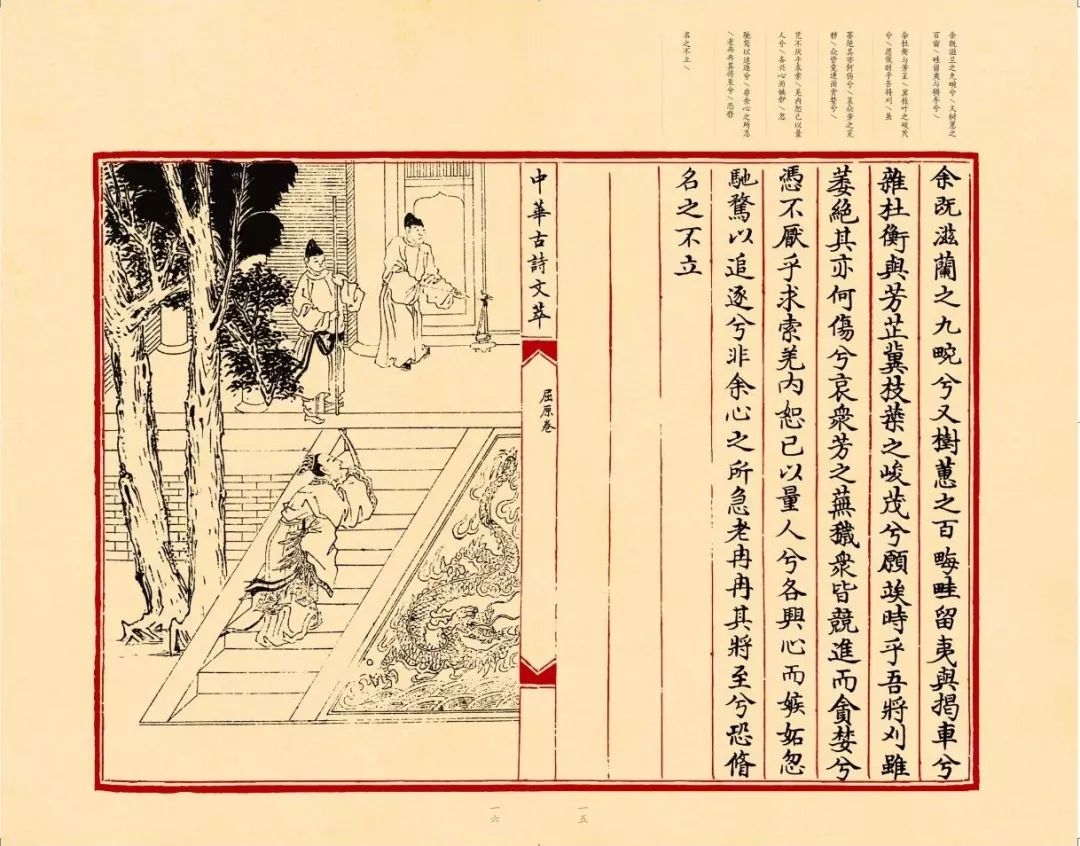 余既滋兰之九畹兮\又树蕙之
百亩\畦留夷与揭车兮\
杂杜衡与芳芷\冀枝叶之峻茂
兮\愿俟时乎吾将刈\虽
萎绝其亦何伤兮\哀众芳之芜
秽\众皆竞进而贪婪兮\
凭不厌乎求索\羌内恕己以量
人兮\各兴心而嫉妒\忽
驰骛以追逐兮\非余心之所急
\老冉冉其将至兮\恐脩
名之不立\
余既滋蘭之九畹兮又樹蕙之百畮畦留夷與揭車兮
雜杜衡與芳芷冀枝葉之峻茂兮願竢時乎吾將刈雖
萎絕其亦何傷兮哀衆芳之蕪穢衆皆競進而貪婪兮
憑不厭乎求索羌内恕己以量人兮各興心而嫉妬忽
馳騖以追逐兮非余心之所急老冉冉其將至兮恐脩
名之不立
中華古詩文萃
屈原卷
一五
一六